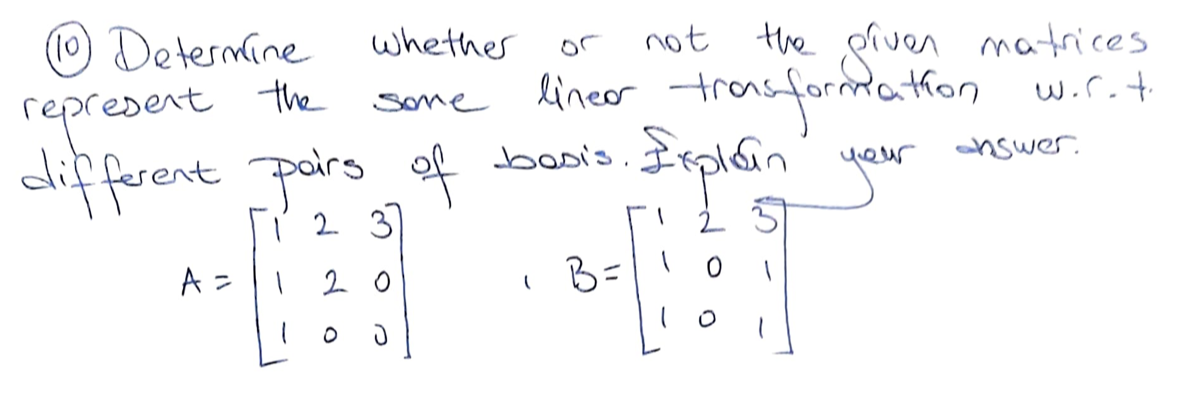 ⑩ Determine whether or not the given matrices
represent the same linear transformation w.r.t.
different pairs of basis. Explain your answer.
A = [1 2 3 , B = [1 2 3
1 2 0 1 0 1
1 0 0] 1 0 1]